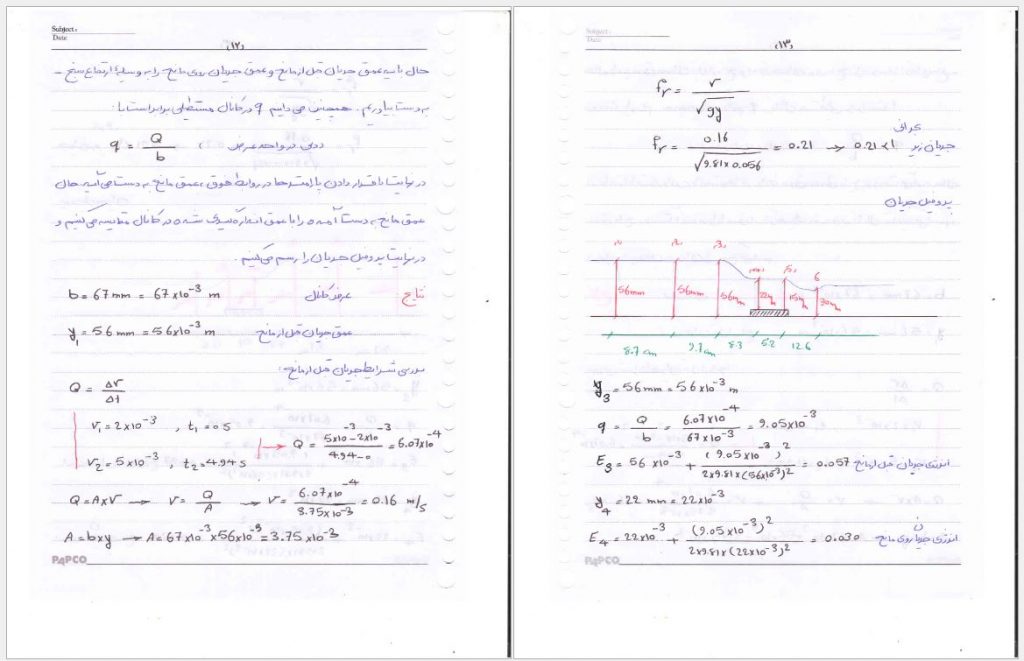 Subject:
Date
(۱۲)
حال باید عمق جریان قبل از مانع و عمق جریان روی مانع را به وسیله ارتفاع سنج
به دست بیاوریم. همچنین می دانیم q در کانال مستطیلی برابر است با:
q = Q / b دبی در واحد عرض
در نهایت با قرار دادن پارامترها در روابط فوق، عمق مانع به دست می آید. حال
عمق مانع به دست آمده را با عمق اندازه گیری شده در کانال مقایسه می کنیم و
در نهایت پروفیل جریان را رسم می کنیم.
نتایج:
b = 67 mm = 67 x 10^-3 m عرض کانال
y1 = 56 mm = 56x10^-3 m عمق جریان قبل از مانع
بررسی شرایط جریان قبل از مانع:
Q = ΔV / Δt
V1 = 2x10^-3 , t1 = 0 s
V2 = 5x10^-3 , t2 = 4.94 s
→ Q = (5x10^-3 - 2x10^-3) / (4.94 - 0) = 6.07x10^-4
Q = AxV → V = Q / A → V = 6.07x10^-4 / 3.75x10^-3 = 0.16 m/s
A = bxy → A = 67x10^-3 x 56x10^-3 = 3.75x10^-3
PAPCO
Subject:
Date
(۱۳)
Fr = V / √gy
جریان زیر بحرانی Fr = 0.16 / √(9.81x0.056) = 0.21 → 0.21 < 1
پروفیل جریان
6
56mm 56mm 56mm 22mm 15mm 30mm
8.7 cm 9.7 cm 8.3 5.2 12.6
y3 = 56 mm = 56x10^-3 m
q = Q / b = 6.07x10^-4 / 67x10^-3 = 9.05x10^-3
E3 = 56x10^-3 + (9.05x10^-3)^2 / 2x9.81x(56x10^-3)^2 = 0.057 انرژی جریان قبل از مانع
y4 = 22 mm = 22x10^-3
E4 = 22x10^-3 + (9.05x10^-3)^2 / 2x9.81x(22x10^-3)^2 = 0.030 انرژی جریان روی مانع
PAPCO